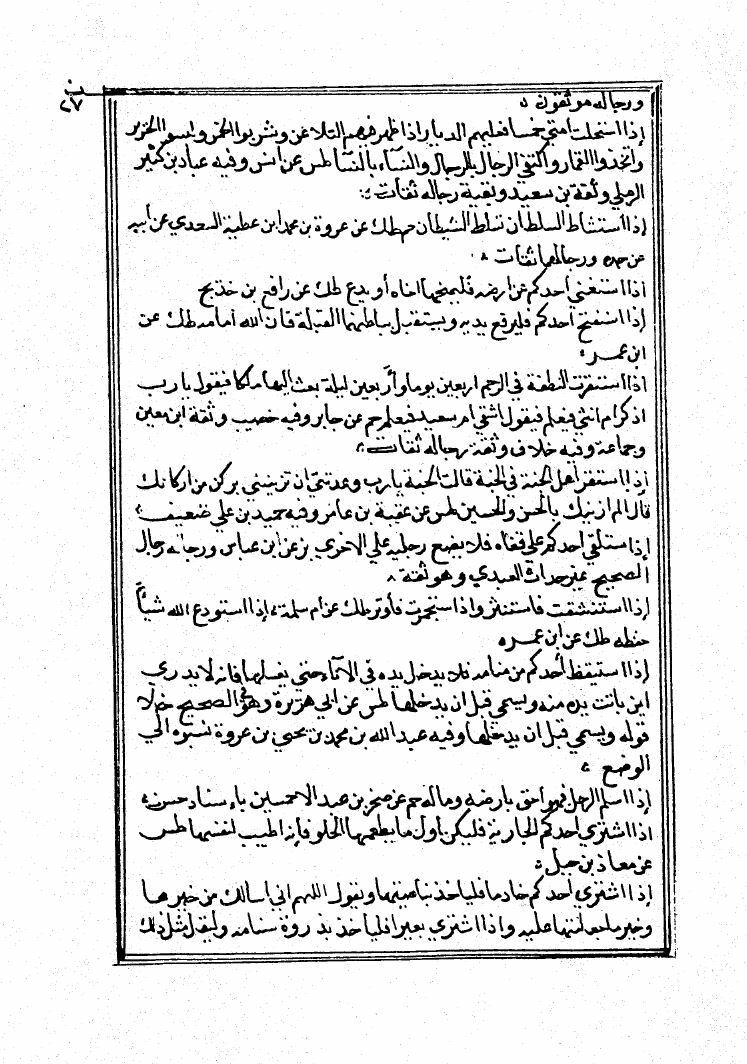 ن
٢٧
ورجاله موثقون
إذا استحلت أمتي خمسا فعليهم الدمار إذا ظهر فيهم التلاعن وشربوا الخمر ولبسوا الحرير
واتخذوا القمار واكتفى الرجال بالرجال والنساء بالنساء طس عن انس وفيه عباد بن كثير
الرملي وثقه بن سعيد وبقية رجاله ثقات
إذا استشاط السلطان تسلط الشيطان حم طك عن عروة بن محمد ابن عطية السعدي عن أبيه
عن جده ورجالهما ثقات
اذا استغنى أحدكم عن ارضه فليمنحها اخاه أو يدع طك عن رافع بن خديج
إذا استفتح أحدكم فليرفع يديه ويستقبل بباطنهما القبلة فان الله أمامه طك عن
ابن عمر
اذا استقرت النطفة في الرحم اربعين يوما وأربعين ليلة بعث اليها ملكا فيقول يا رب
اذكر ام انثى فيعلم فيقول اشقي ام سعيد فيعلم حم عن جابر وفيه خصيب وثقه ابن معين
وجماعة وفيه خلاف وثقة رجاله ثقات
إذا استقر أهل الجنة في الجنة قالت الجنة يا رب وعدتني ان تزينني بركن من اركانك
قال الم ازينك بالحسن والحسين طس عن عقبة بن عامر وفيه حميد بن علي ضعيف
إذا ستلقى احدكم على قفاه فلا يضع رجليه علي الاخرى بز عن ابن عباس ورجاله رجال
الصحيح غير حداث العبدي وهو ثقة
إذا استنشقت فاستنثر واذا استجمرت فأوتر طك عن ام سلمة إذا استودع الله شيأ
حفظه طك عن ابن عمر
إذا استيقظ أحدكم من منامه فلا يدخل يده في الاناء حتى يغسلها فانه لا يدري
اين باتت يده منه ويسمي قبل ان يدخلها طس عن ابي هريرة وهو في الصحيح خلا
قوله ويسمي قبل ان يدخلها وفيه عبد الله بن محمد بن يحيى بن عروة نسبوه الي
الوضع
إذا اسلم الرجل فهو أحق بارضه وماله حم عن صخر بن عبد الاحمسين باسناد حسن
اذا اشترى أحدكم الجارية فليكن أول ما يطعمها الحلو فإنه اطيب لنفسها طس
عن معاذ بن جبل
إذا اشترى أحدكم خادما فليأخذ بناصيتها ويقول اللهم اني أسالك من خيرها
وخير ما جبلتها عليه واذا اشترى بعيرا فليأخذ بذروة سنامه وليقل مثل ذلك